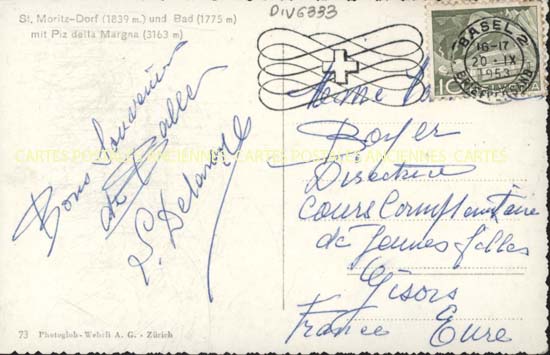 DIV6333
St. Moritz-Dorf (1839 m.) und Bad (1775 m)
mit Piz della Margna (3163 m)
BASEL 2
16-17
20 - IX
1953
BRIEFVERSAND
10 HELVETIA
Bons Souvenirs
de Balle
S. Delaroche
Mme
Boyer
Directrice
Cours Complémentaire
de Jeunes filles
Gisors
France Eure
CARTES POSTALES ANCIENNES CARTES POSTALES ANCIENNES CARTES POSTALES ANCIENNES
73 Photoglob-Wehrli A. G. - Zürich